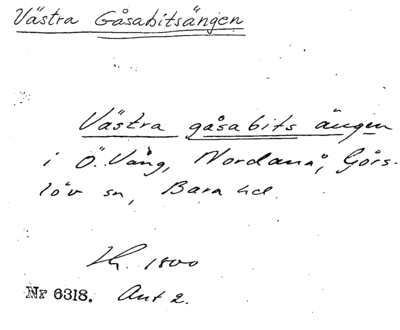 Västra Gåsabitsängen
Västra gåsabits ängen
i Ö. Vång, Nordanå, Görs-
löv sn, Bara hd.
1800
Nr 6318. Akt 2.